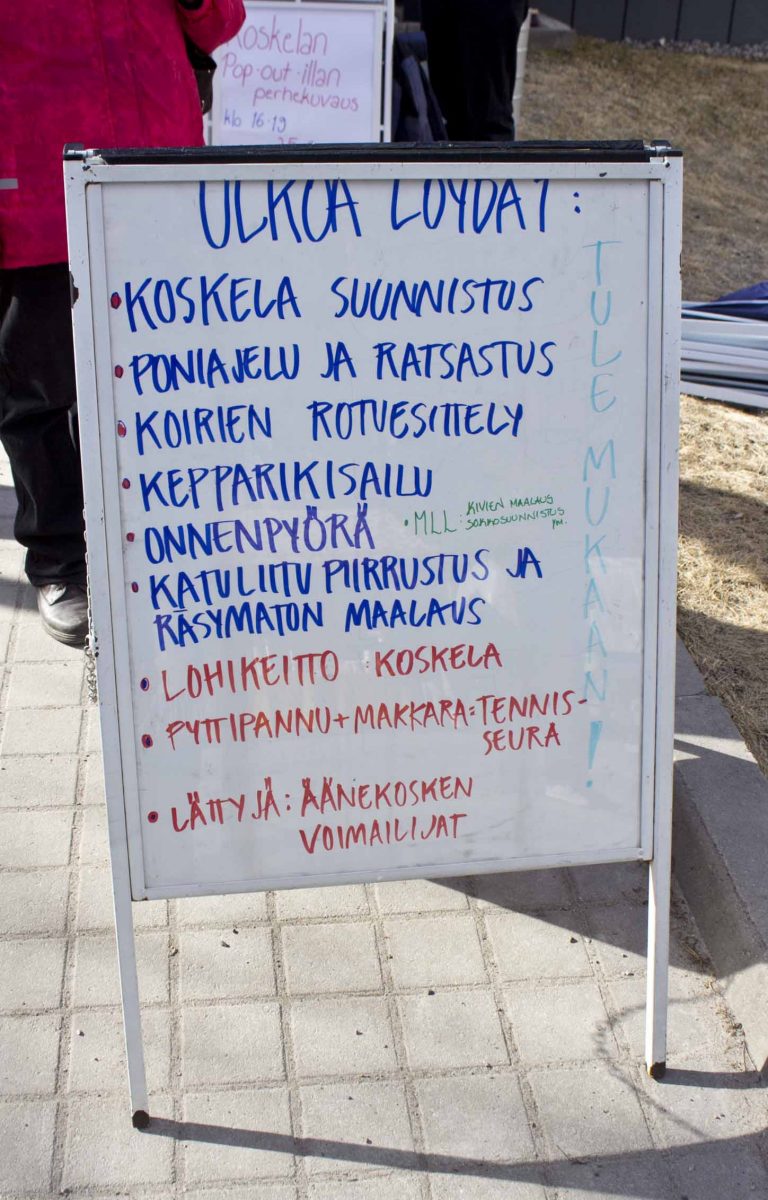 Koskelan
Pop-out-illan
perhekuvaus
klo 16-19
ULKOA LÖYDÄT:
• KOSKELA SUUNNISTUS
• PONIAJELU JA RATSASTUS
• KOIRIEN ROTUESITTELY
• KEPPARIKISAILU
• ONNENPYÖRÄ
• MLL: KIVIEN MAALAUS
SOKKOSUUNNISTUS
YM.
• KATULIITU PIIRRUSTUS JA
RÄSYMATON MAALAUS
• LOHIKEITTO : KOSKELA
• PYTTIPANNU + MAKKARA: TENNIS-
SEURA
• LÄTTYJÄ: ÄÄNEKOSKEN
VOIMAILIJAT
TULE MUKAAN!